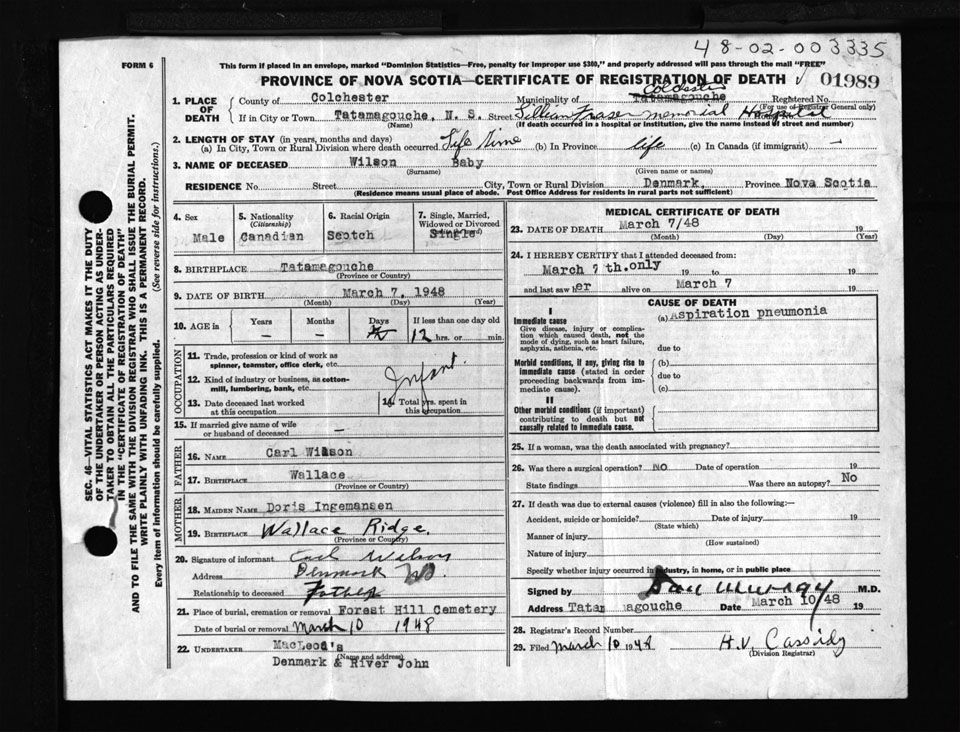 48-02-003335
FORM 6
This form if placed in an envelope, marked "Dominion Statistics—Free, penalty for improper use $300," and properly addressed will pass through the mail "FREE"
PROVINCE OF NOVA SCOTIA—CERTIFICATE OF REGISTRATION OF DEATH
01989
1. PLACE OF DEATH
County of Colchester Municipality of Tatamagouche Colchester Registered No.
(For use of Registrar General only)
If in City or Town Tatamagouche, N. S. Street Lillian Fraser Memorial Hospital
(Name) (If death occurred in a hospital or institution, give the name instead of street and number)
2. LENGTH OF STAY (in years, months and days)
(a) In City, Town or Rural Division where death occurred Life Time (b) In Province life (c) In Canada (if immigrant) —
3. NAME OF DECEASED Wilson Baby
(Surname) (Given name or names)
RESIDENCE No. Street City, Town or Rural Division Denmark, Province Nova Scotia
(Residence means usual place of abode. Post Office Address for residents in rural parts not sufficient)
4. Sex
Male
5. Nationality (Citizenship)
Canadian
6. Racial Origin
Scotch
7. Single, Married, Widowed or Divorced
Single
8. BIRTHPLACE Tatamagouche
(Province or Country)
9. DATE OF BIRTH March 7, 1948
(Month) (Day) (Year)
10. AGE in Years Months Days If less than one day old
— — 12 hrs. or min.
OCCUPATION
11. Trade, profession or kind of work as spinner, teamster, office clerk, etc.
Infant
12. Kind of industry or business, as cotton-mill, lumbering, bank, etc.
13. Date deceased last worked at this occupation
14. Total yrs. spent in this occupation
15. If married give name of wife or husband of deceased —
FATHER
16. NAME Carl Wilson
17. BIRTHPLACE Wallace
(Province or Country)
MOTHER
18. MAIDEN NAME Doris Ingemansen
19. BIRTHPLACE Wallace Ridge.
(Province or Country)
20. Signature of informant Carl Wilson
Address Denmark NS.
Relationship to deceased Father
21. Place of burial, cremation or removal Forest Hill Cemetery
Date of burial or removal March 10 1948
22. UNDERTAKER MacLeod's
(Name and address)
Denmark & River John
MEDICAL CERTIFICATE OF DEATH
23. DATE OF DEATH March 7/48 19
(Month) (Day) (Year)
24. I HEREBY CERTIFY that I attended deceased from:
March 7 th.only 19 to 19
and last saw her alive on March 7 19
CAUSE OF DEATH
I
Immediate cause (a) Aspiration pneumonia
Give disease, injury or complication which caused death, not the mode of dying, such as heart failure, asphyxia, asthenia, etc.
due to
Morbid conditions, if any, giving rise to immediate cause (stated in order proceeding backwards from immediate cause).
(b)
due to
(c)
II
Other morbid conditions (if important) contributing to death but not causally related to immediate cause.
25. If a woman, was the death associated with pregnancy?
26. Was there a surgical operation? NO Date of operation 19
State findings Was there an autopsy? No
27. If death was due to external causes (violence) fill in also the following:—
Accident, suicide or homicide? Date of injury 19
(State which)
Manner of injury
(How sustained)
Nature of injury
Specify whether injury occurred in industry, in home, or in public place
Signed by Dan Murray M.D.
Address Tatamagouche Date March 10/48 19
28. Registrar's Record Number
29. Filed March 10 1948 H.V. Cassidy
(Division Registrar)
SEC. 46—VITAL STATISTICS ACT MAKES IT THE DUTY
OF THE UNDERTAKER OR PERSON ACTING AS UNDER-
TAKER TO OBTAIN ALL THE PARTICULARS REQUIRED
IN THE "CERTIFICATE OF REGISTRATION OF DEATH"
AND TO FILE THE SAME WITH THE DIVISION REGISTRAR WHO SHALL ISSUE THE BURIAL PERMIT.
WRITE PLAINLY WITH UNFADING INK. THIS IS A PERMANENT RECORD.
Every item of information should be carefully supplied. (See reverse side for instructions.)